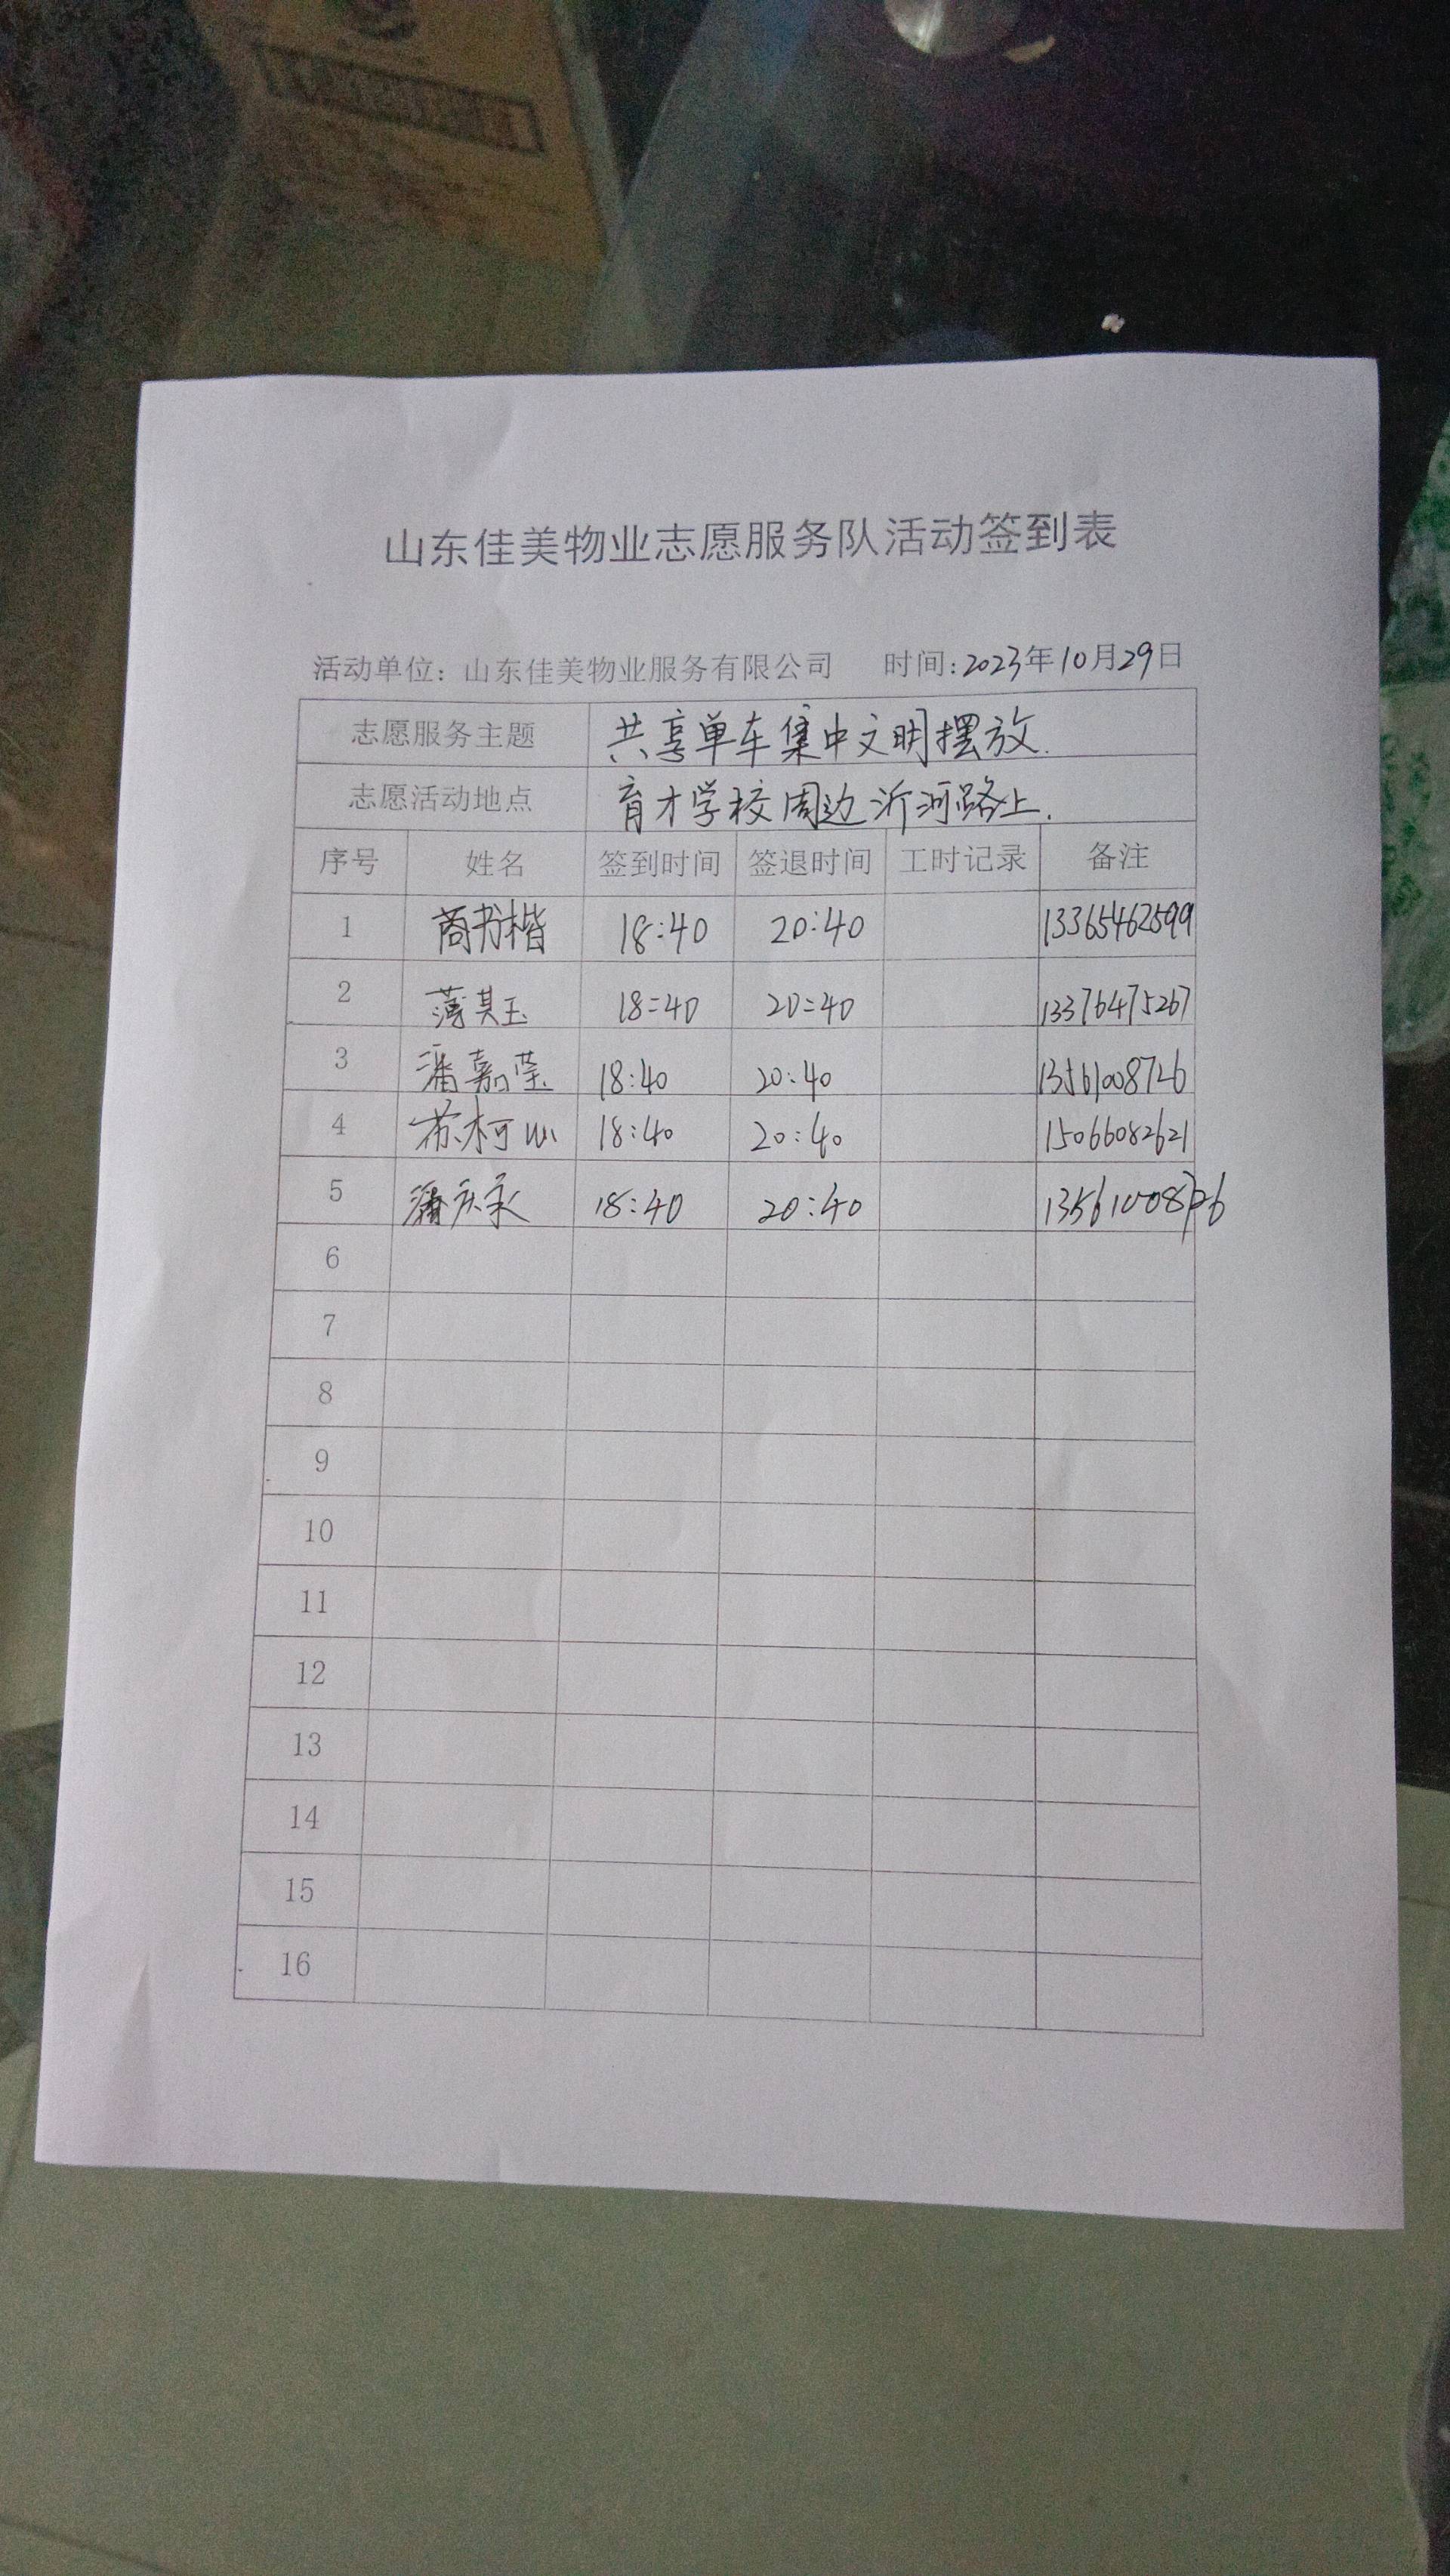 山东佳美物业志愿服务队活动签到表
活动单位：山东佳美物业服务有限公司 时间：2023年10月29日
志愿服务主题 共享单车集中文明摆放.
志愿活动地点 育才学校周边沂河路上.
序号 姓名 签到时间 签退时间 工时记录 备注
1 商书楷 18:40 20:40 13365462599
2 薄其玉 18:40 20:40 13376475267
3 潘嘉莹 18:40 20:40 13561008726
4 苏柯心 18:40 20:40 15066082621
5 潘庆永 18:40 20:40 13561008726
6
7
8
9
10
11
12
13
14
15
16